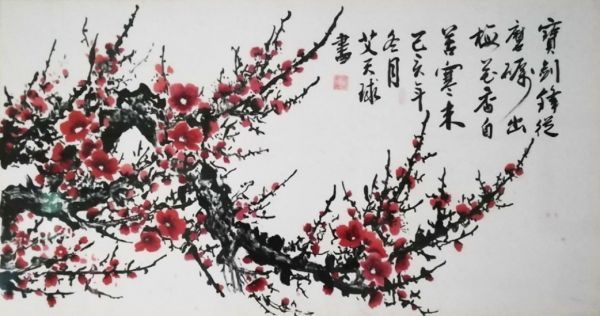 寶剑鋒從
磨礪出
梅花香自
苦寒来
己亥年
冬月
艾天球
畫